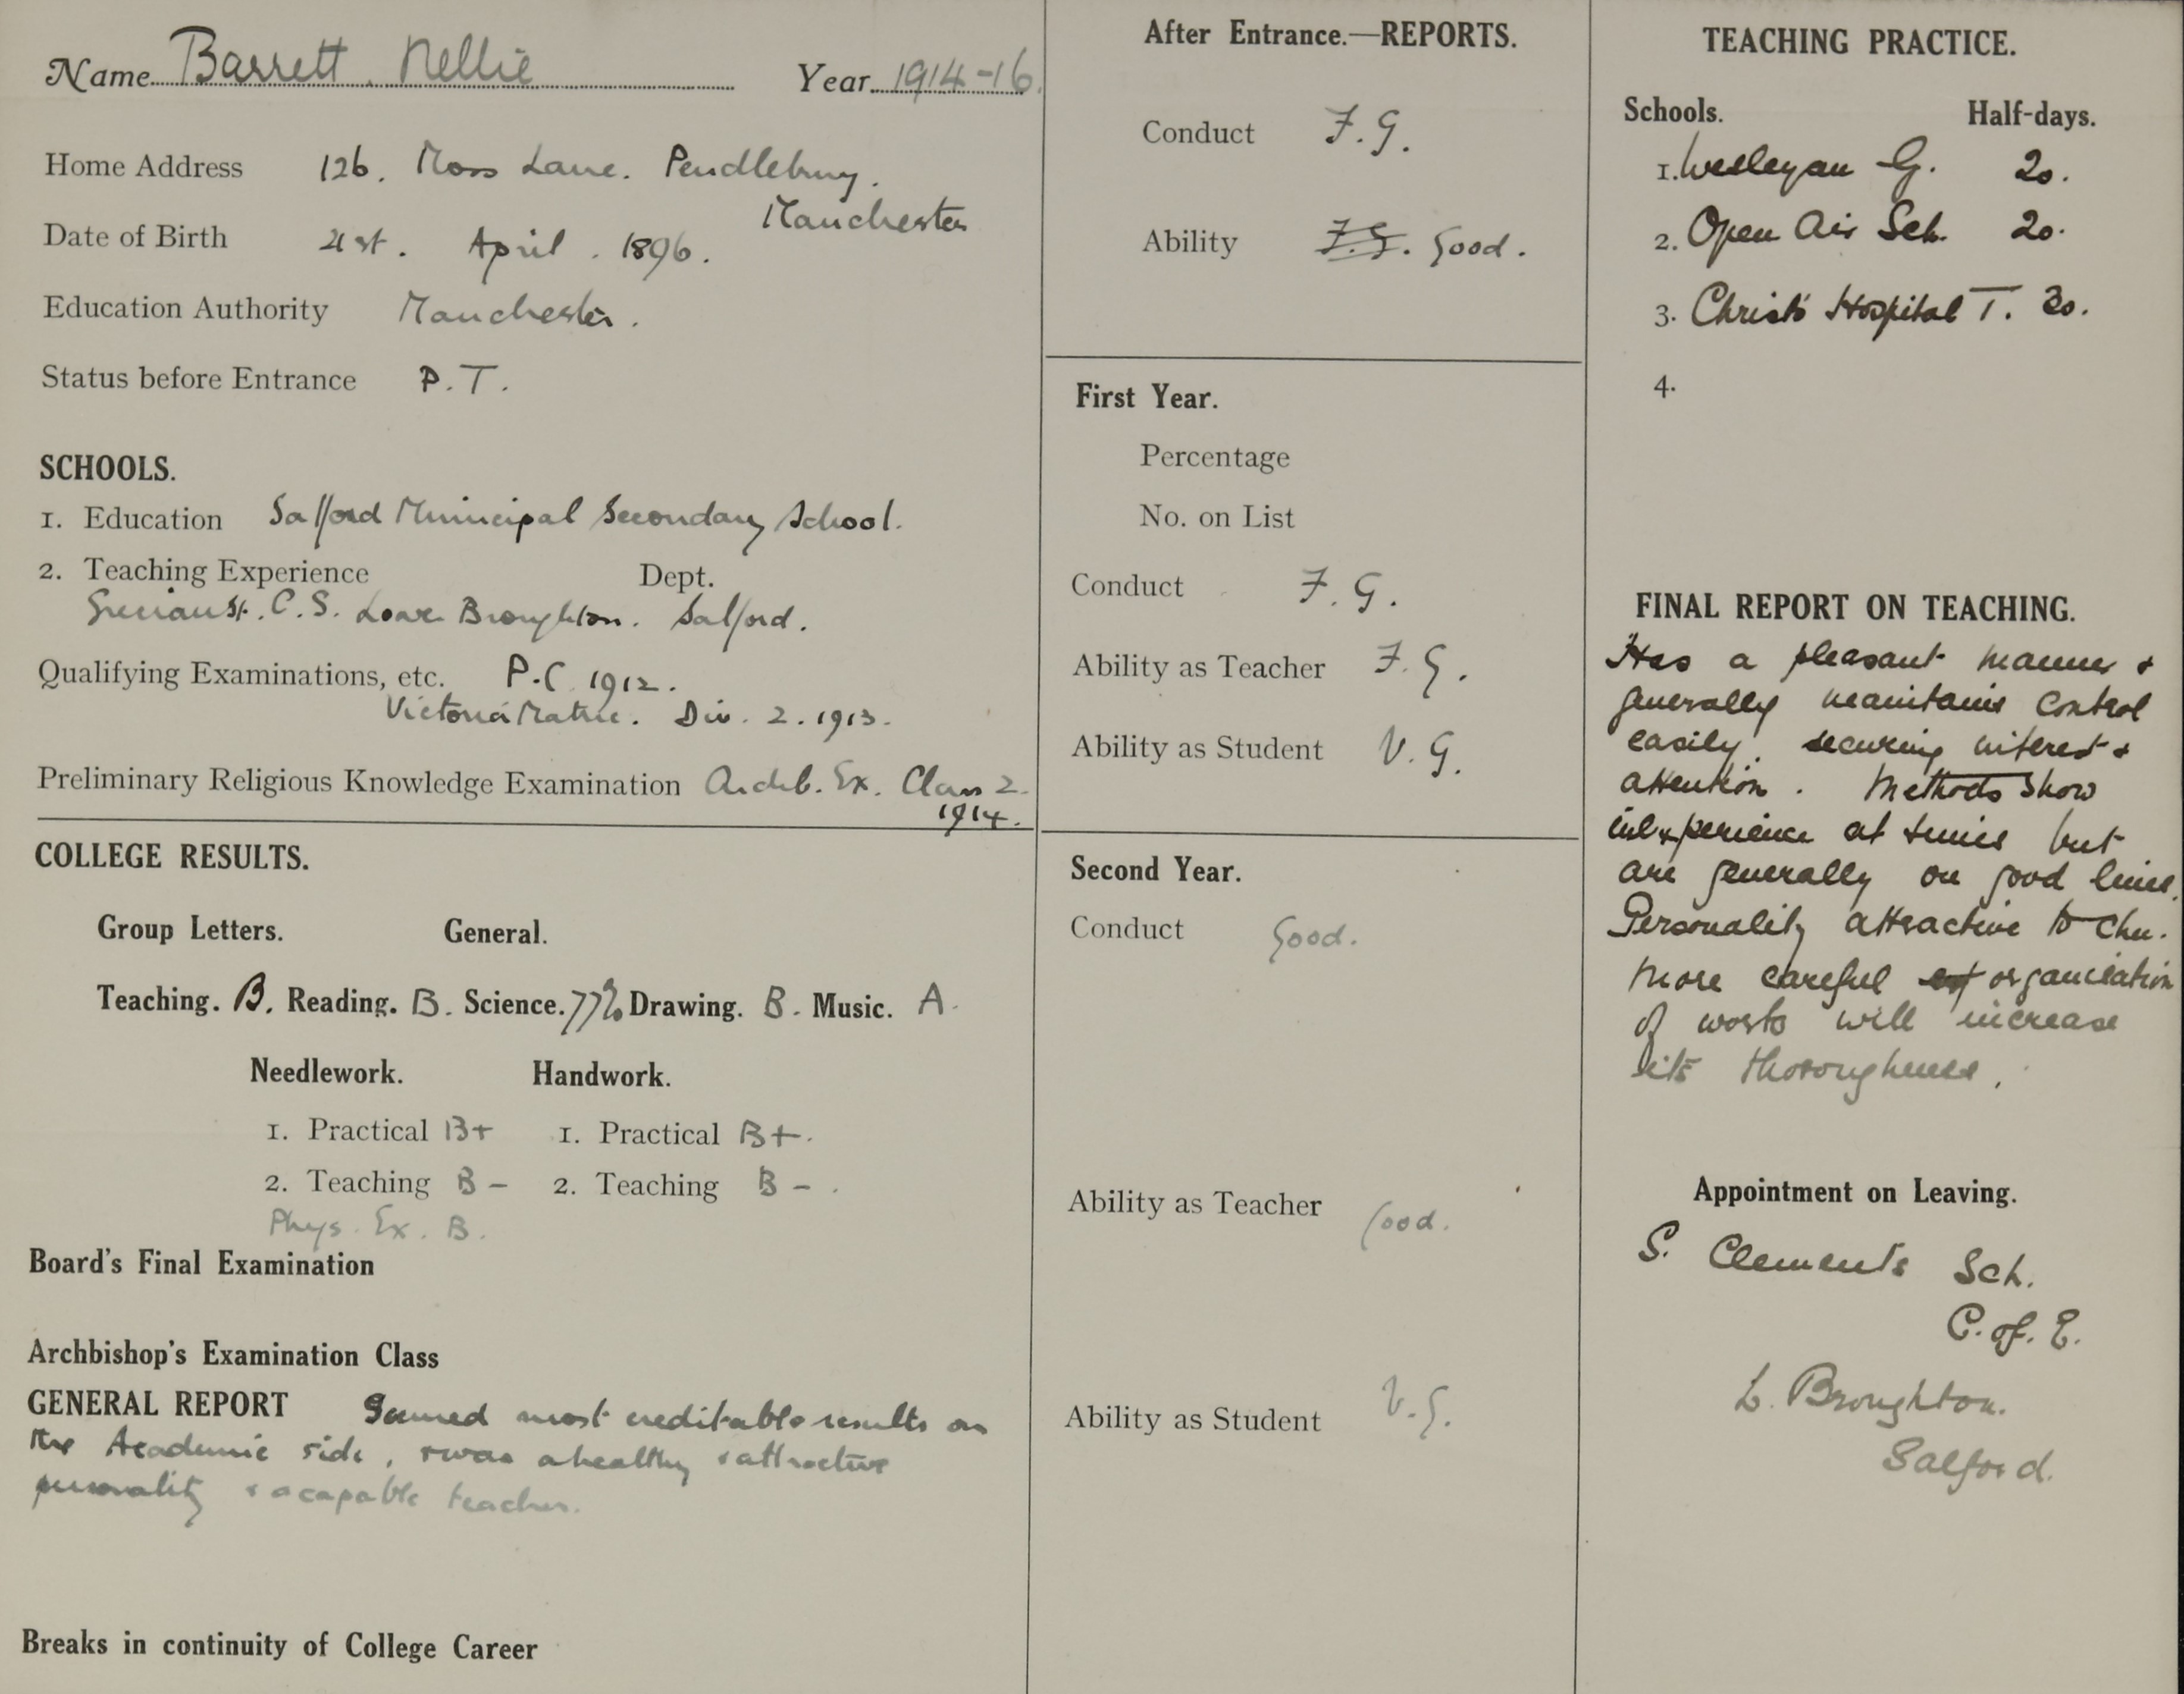 Name Barrett. Nellie Year 1914-16.
Home Address 126. Moss Lane. Pendlebury.
Manchester
Date of Birth 21st. April. 1896.
Education Authority Manchester.
Status before Entrance P.T.
SCHOOLS.
1. Education Salford Municipal Secondary School.
2. Teaching Experience Dept.
Grecian St. C.S. Lower Broughton. Salford.
Qualifying Examinations, etc. P.C. 1912.
Victoria Matric. Div. 2. 1913.
Preliminary Religious Knowledge Examination Archb. Ex. Class 2.
1914.
COLLEGE RESULTS.
Group Letters. General.
Teaching. B. Reading. B. Science. 77% Drawing. B. Music. A.
Needlework. Handwork.
1. Practical B+ 1. Practical B+.
2. Teaching B- 2. Teaching B-.
Phys. Ex. B.
Board's Final Examination
Archbishop's Examination Class
GENERAL REPORT Gained most creditable results on
the Academic side, & was a healthy & attractive
personality & a capable teacher.
Breaks in continuity of College Career
After Entrance.—REPORTS.
Conduct F.G.
Ability F.G. Good.
First Year.
Percentage
No. on List
Conduct F.G.
Ability as Teacher F.G.
Ability as Student V.G.
Second Year.
Conduct Good.
Ability as Teacher Good.
Ability as Student V.G.
TEACHING PRACTICE.
Schools. Half-days.
1. Wesleyan G. 20.
2. Open Air Sch. 20.
3. Christ's Hospital T. 30.
4.
FINAL REPORT ON TEACHING.
Has a pleasant manner &
generally maintains control
easily, securing interest &
attention. Methods show
inexperience at times but
are generally on good lines.
Personality attractive to chn.
More careful organisation
of work will increase
its thoroughness.
Appointment on Leaving.
S. Clements Sch.
C. of. E.
L. Broughton.
Salford.